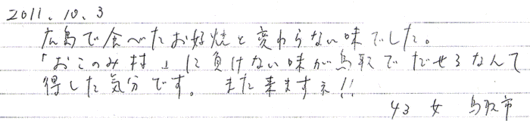 2011.10.3
広島で食べたお好焼と変わらない味でした。
「おこのみ村」に負けない味が鳥取でだせるなんて
得した気分です。 また来ますネ!!
43 女 鳥取市